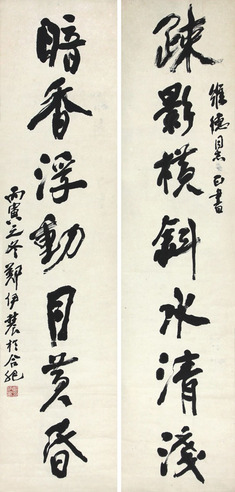 维德同志正書
疎影橫斜水清淺
暗香浮動月黃昏
丙寅立冬鄭伊農於合肥